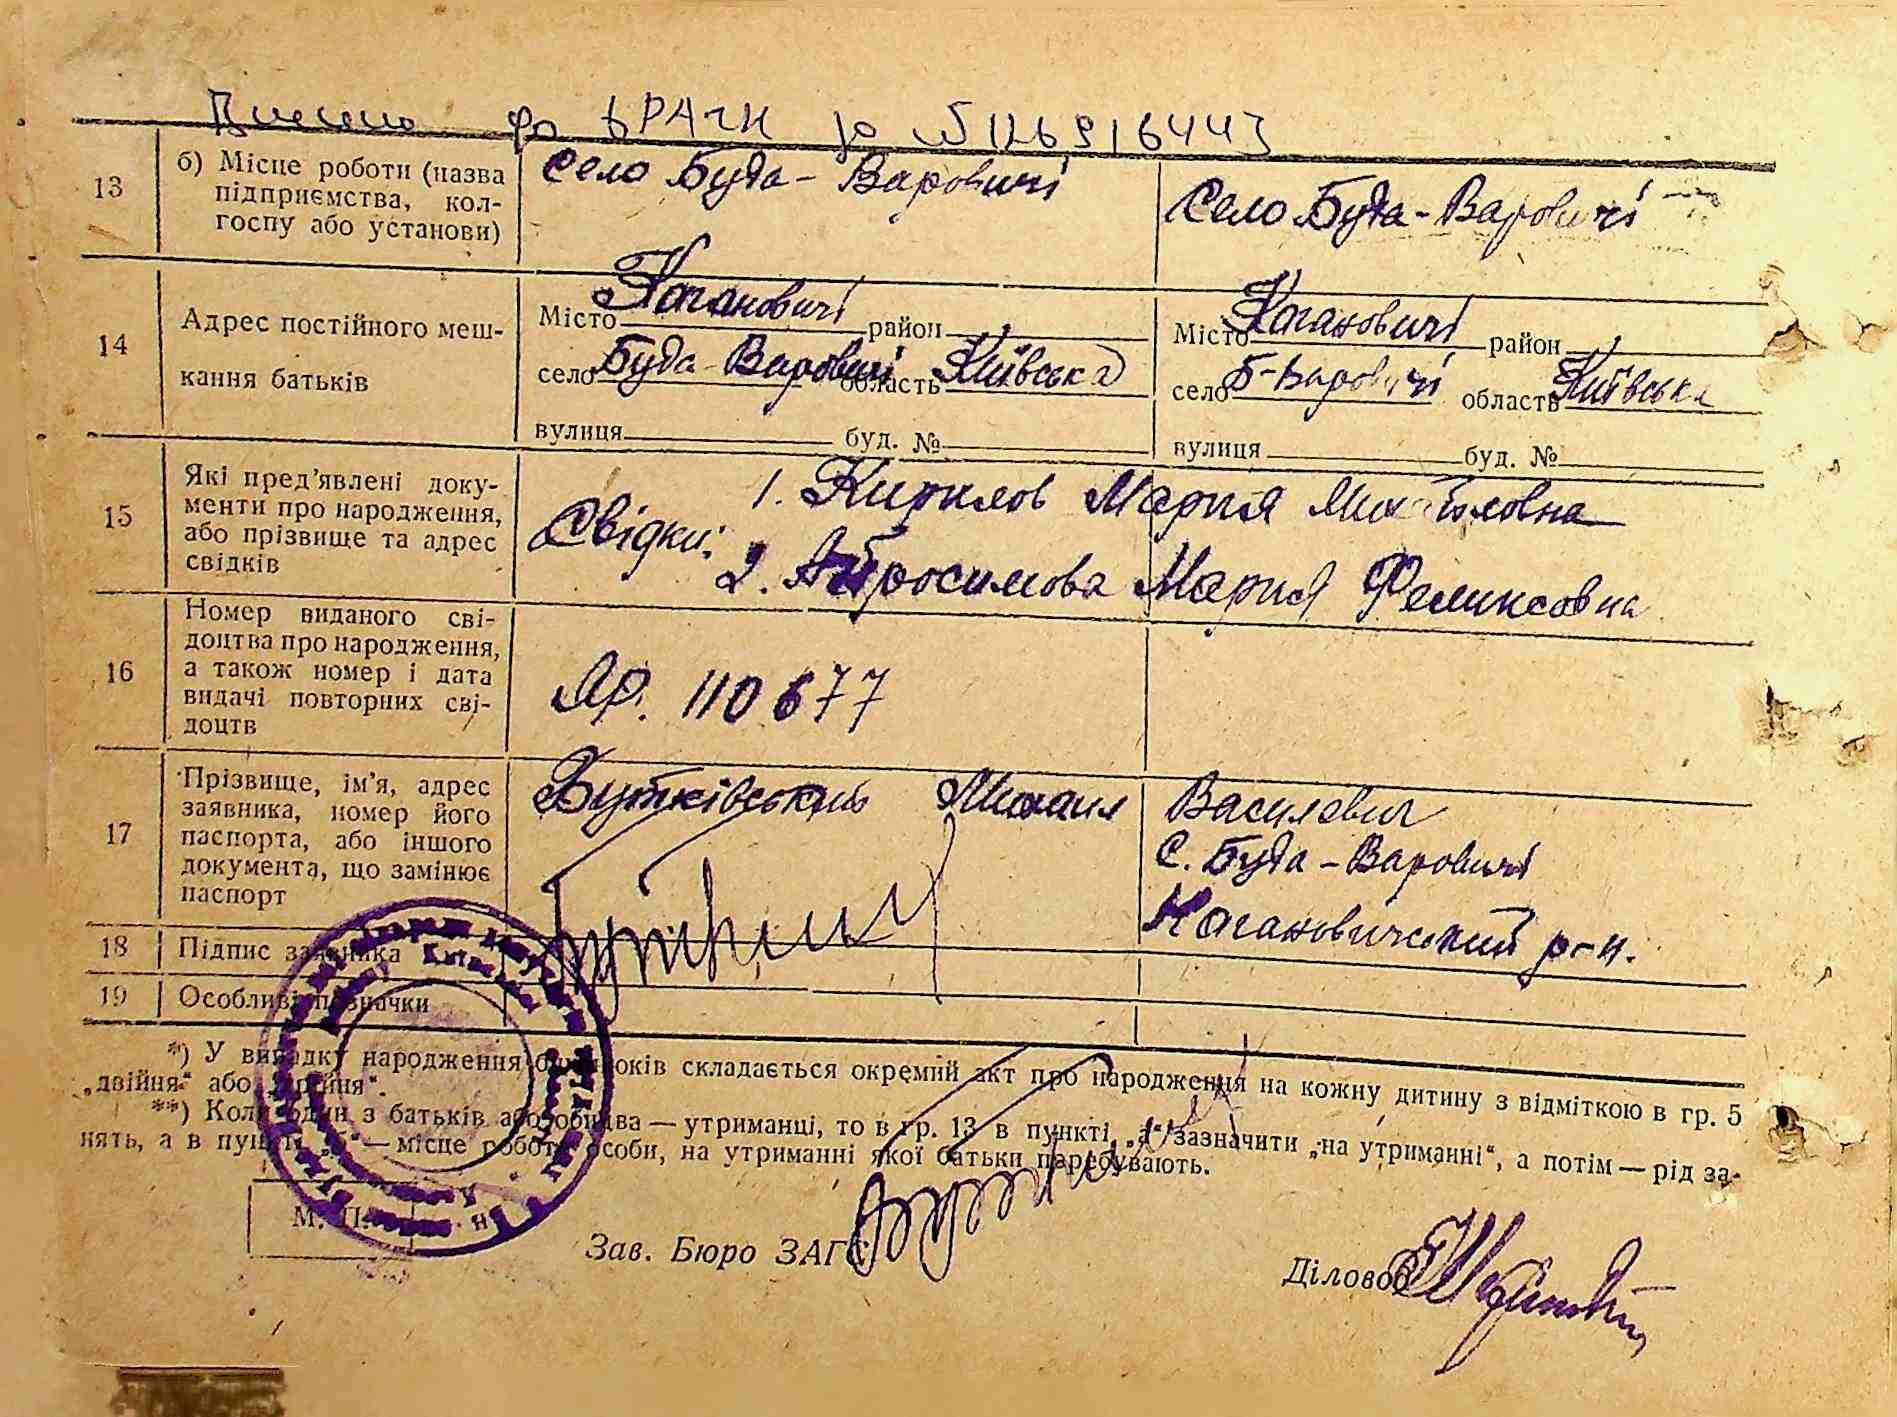 Внесено до ДРАЦС за №126916443
13
б) Місце роботи (назва
підприємства, кол-
госпу або установи)
Село Буда-Варовичі
Село Буда-Варовичі
14
Адрес постійного меш-
кання батьків
Місто Кагановичі район
село Буда-Варовичі область Київська
вулиця буд. №
Місто Кагановичі район
село Б-Варовичі область Київська
вулиця буд. №
15
Які пред'явлені доку-
менти про народження,
або прізвище та адрес
свідків
Свідки:
1. Кирилов Мария Михайловна
2. Абросимова Мария Феликсовна
16
Номер виданого сві-
доцтва про народження,
а також номер і дата
видачі повторних сві-
доцтв
ЯР. 110677
17
Прізвище, ім'я, адрес
заявника, номер його
паспорта, або іншого
документа, що замінює
паспорт
Бутківський Михаил Василевич
с. Буда-Варовичі
Кагановичский р-н.
18
Підпис заявника
19
Особливі позначки
*) У випадку народження близнюків складається окремий акт про народження на кожну дитину з відміткою в гр. 5
„двійня“ або „трійня“.
**) Коли один з батьків або обидва — утриманці, то в гр. 13 в пункті „а“ зазначити „на утриманні“, а потім — рід за-
нять, а в пункті „б“ — місце роботи особи, на утриманні якої батьки перебувають.
М. П.
Зав. Бюро ЗАГС
Діловод